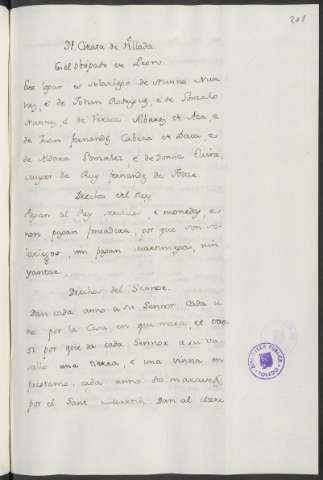 201
En el obispado de Leon.
Este logar es solariego de Nunno Nun
nez, e de Johan Rodriguez, e de Gonzalo
Nunnez, e de Alvarez de Aza, e
de Juan Fernandez Cabeza de Vaca, e
de Aldara Gonzalez, e de Donna Elvira,
muger de Ruy Fernandez de Tovar.
Derechos del Rey
Pagan al Rey servicios, e monedas, e
non pagan fonsadera, por que son so
lariegos, nin pagan martiniega, nin
yantar.
Derechos del Sennor.
Dan cada anno a su Sennor cada u
no por la Casa, en que mora, et
si por que da cada Sennor a su va
sallo una tierra, e una vinna en
prestamo, cada anno maravedis
por el Sant Martin. Dan al
BIBLIOTECA PUBLICA
TOLEDO